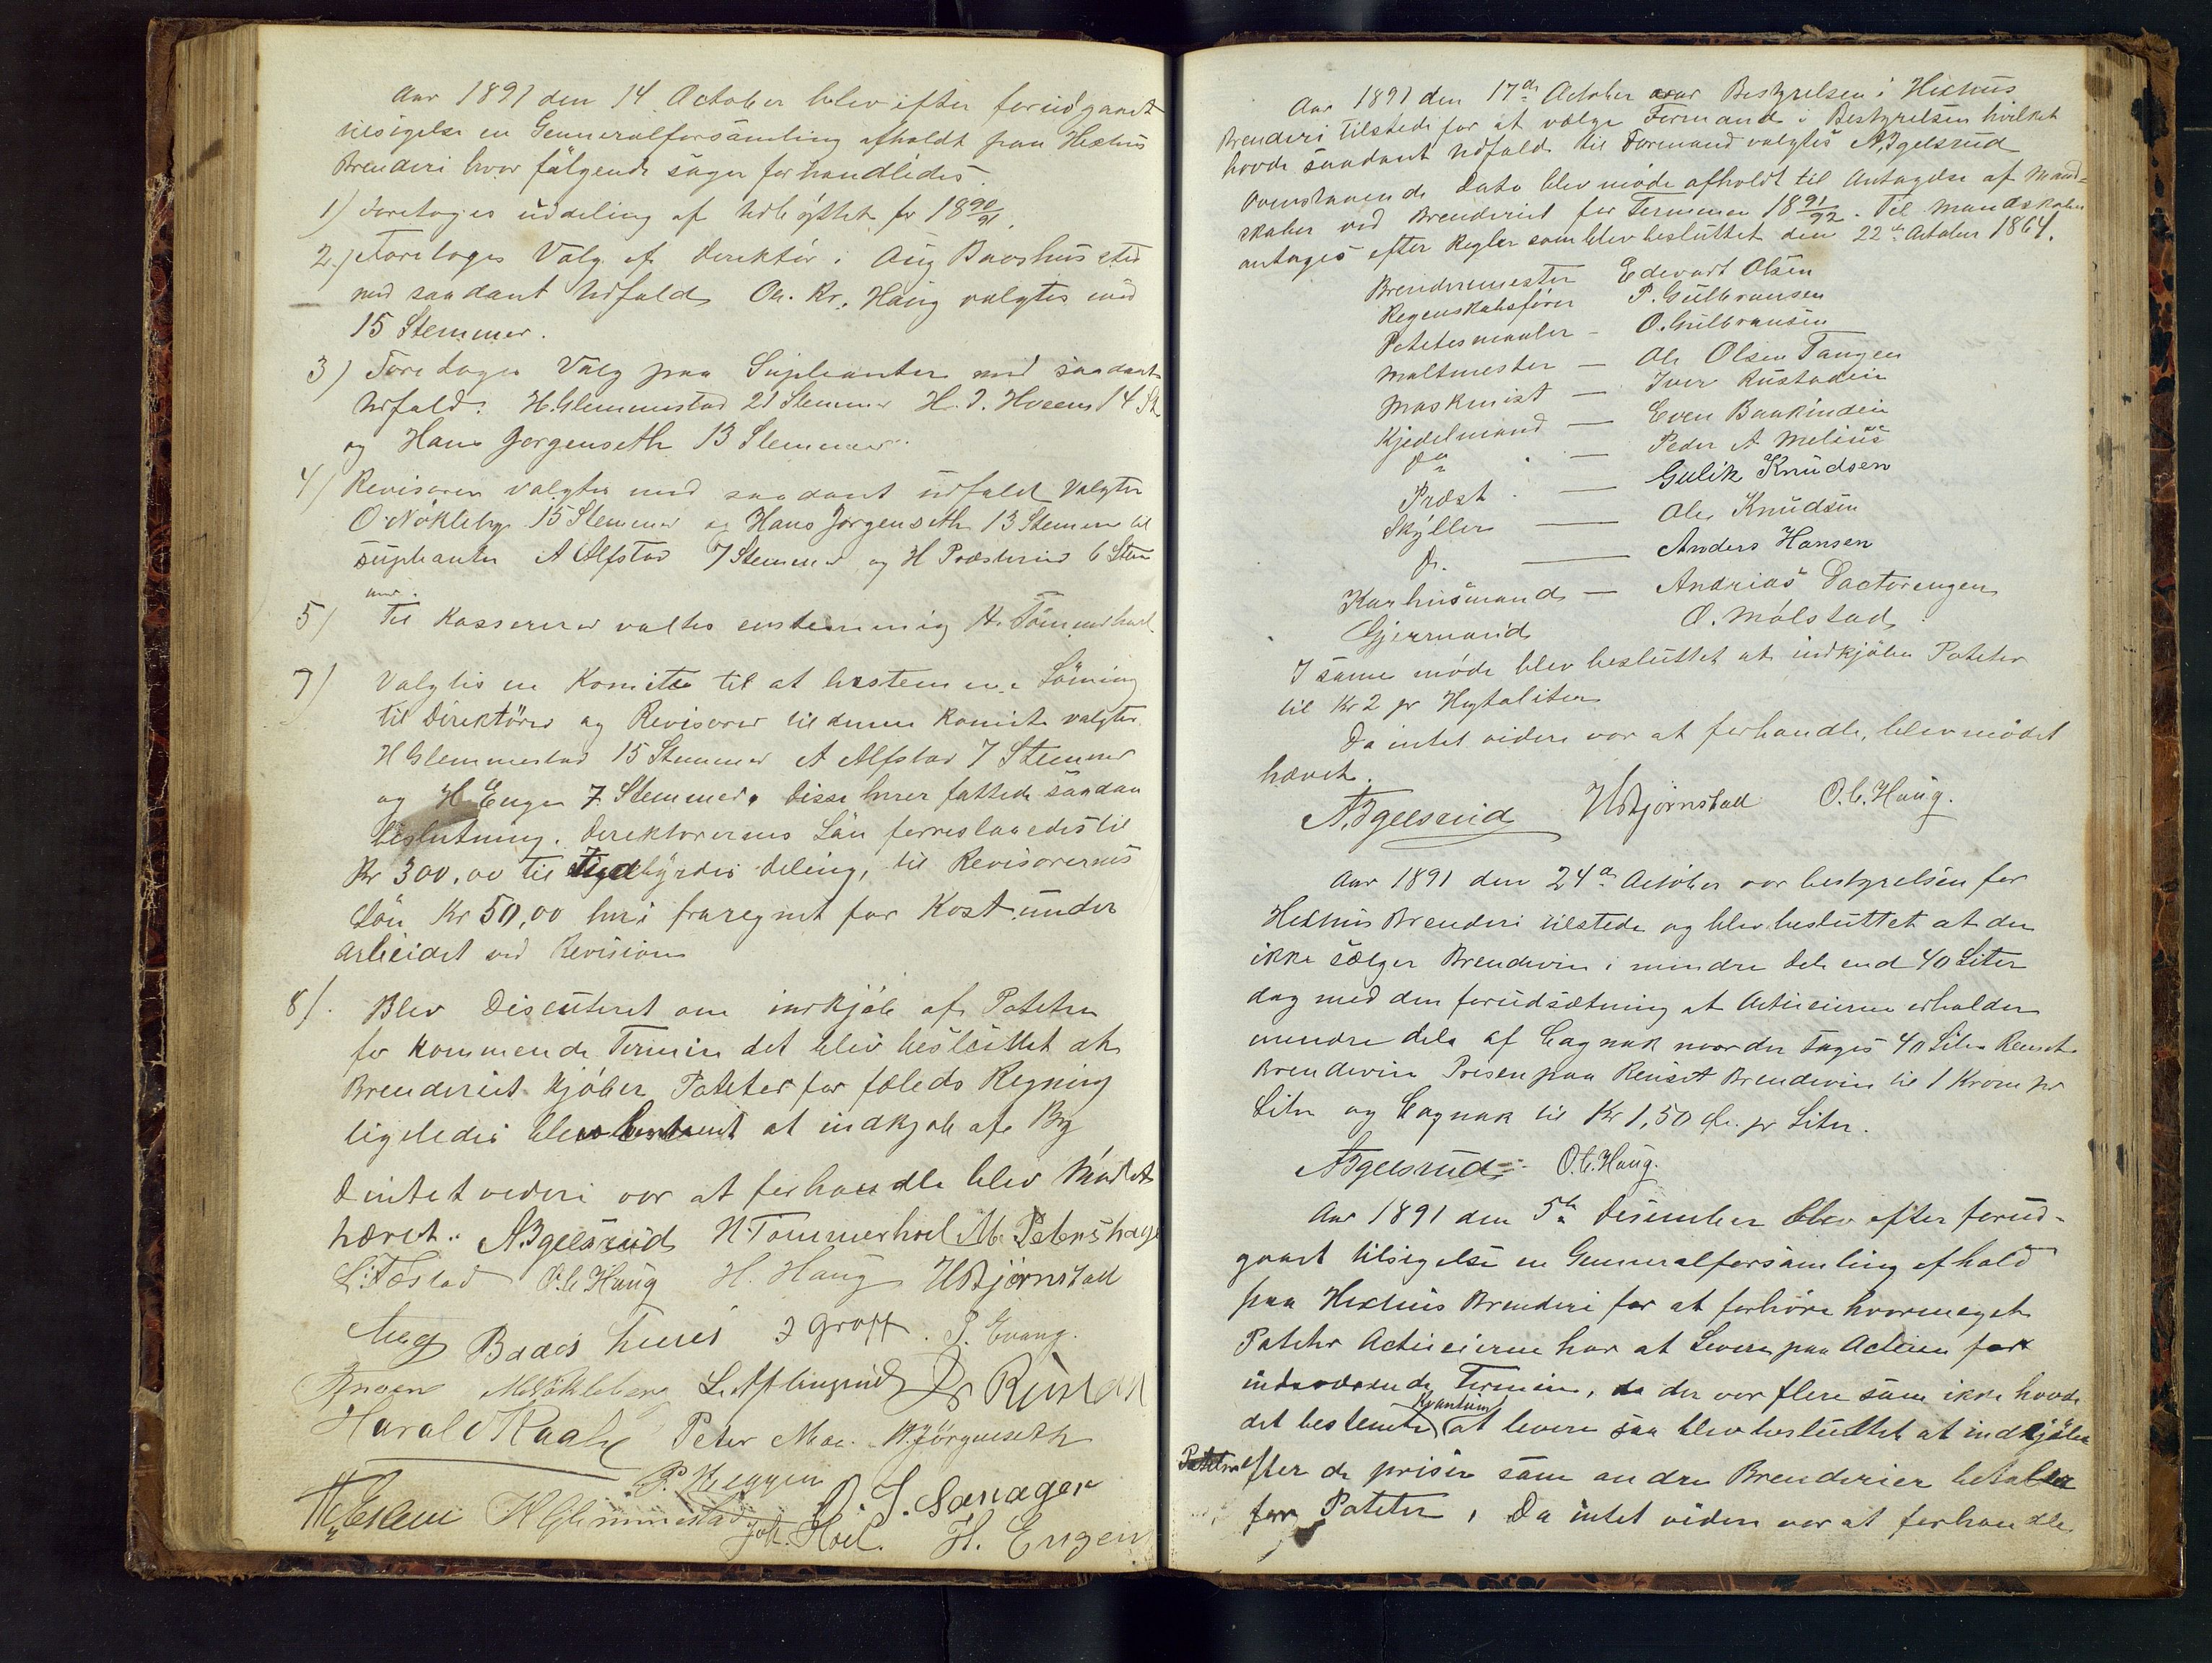 Aar 1891 den 14 October blev efter forudgaaet
tilsigelse en Genneralforsamling afholdt paa Hexhus
Brenderi hvor følgende sager forhandledes.
1) Foretoges uddeling af Udbyttet for 18 90/91.
2) Foretoges Valg af Direktør i Aug Baashus sted
med saadant Udfald Ole Kr. Haug valgtes med
15 Stemmer.
3) Foretoges Valg paa Supleanter med saadant
Udfald: H. Glemmestad 21 Stemmer H. J. Hveem 14 St
og Hans Jørgenseth 13 Stemmer.
4) Revisorer valgtes med saadant udfald Valgtes
O Nøkleby 15 Stemmer og Hans Jørgenseth 13 Stemmer til
supleanter A Alfstad 7 Stemmer og H Præsterud 6 Stem
mer.
5) Til Kasserer valtes enstemmig H. Tømmerhoel
7) Valgtes en Komite til at bestemme Lønning
til Direktører og Revisorer til denne Komite valgtes
H Glemmestad 15 Stemmer A Alfstad 7 Stemmer
og H. Engen 7 Stemmer. Disse herrer fattede saadan
beslutning. Direktørernes Løn forreslaaedes til
Kr 300,00 til Ligebyrdes deling, til Revisorernes
Løn Kr 50,00 heri fraregnet for Kost under
arbeidet ved Revision
8). Blev Discuteret om indkjøb af Poteter
for kommende Termin det blev besluttet at
Brenderiet kjøber Poteter for fæleds Regning
ligeledes blev bestemt at indkjøbe af Byg
Da intet videre var at forhandle blev Mødet
hævet. A. Igelsrud H. Tømmerhoel M. Petershagen
L. Fostad O. C. Haug H. Haug H Bjørnstad
Aug Baashuus J Grøff. P. Evang.
M. Nøkleberg L. Aflangrud
Harald Kaaly Peter Moe. H. Jørgenseth
P. Heggen O. J. Sanager
H Glemmestad Joh. Hoel. H. Engen
Aar 1891 den 17de October var Bestyrelsen i Hexhus
Brenderi tilstede for at vælge Formand i Bestyrelsen hvilket
havde saadant Udfald til Formand valgtes A. Igelsrud
Ovenstaaende Dato blev møde afholdt til Antagelse af Mand=
skaber ved Brenderiet for Terminen 18 91/92. Til Mandskaber
antages efter Regler som blev besluttet den 22de October 1864.
Brendermester Edevart Olsen
Regenskabsfører P. Gulbransen
Potetesmaaler - O. Gulbransen
Maltmester — Ole Olsen Tangen
Maskinist — Iver Rustadeie
Kjedelmand — Even Baakindeie
Do — Peder A Melius
Præst. — Gulik Knudsen
Skyller — Ole Knudsen
Do. — Anders Hansen
Karhusmand — Andreas Dactorengen
Gjermand O. Mølstad
I samme møde blev besluttet at indkjøbe Poteter
til Kr 2 pr Hegtoliter
Da intet videre var at forhandle, blev mødet
hævet.
A. Igelsrud H Bjørnstad O. C. Haug.
Aar 1891 den 24de October var bestyrelsen for
Hexhus Brenderi tilstede og blev besluttet at der
ikke sælger Brendevin i mindre Dele end 40 Liter
dog med den forudsætning at Actieeierne erholder
mindre dele af Cagnak naar der tages 40 Liter Renset
Brendevin Prisen paa Renset Brendevin til 1 Krone pr
Liter og Cagnak til Kr 1,50 Øre pr Liter.
A Igelsrud O. C. Haug.
Aar 1891 den 5te Desember blev efter forud-
gaaet tilsigelse en Genneralforsamling afhold
paa Hexhus Brenderi for at forhøre hvormeget
Poteter Actieeierne har at Levere paa Actien for
indeværende Termin, da der var flere som ikke havde
det bestemte Kvantum at levere saa blev besluttet at indkjøbe
Poteter efter de priser som andre Brenderier betaler
for Poteter, Da intet videre var at forhandle